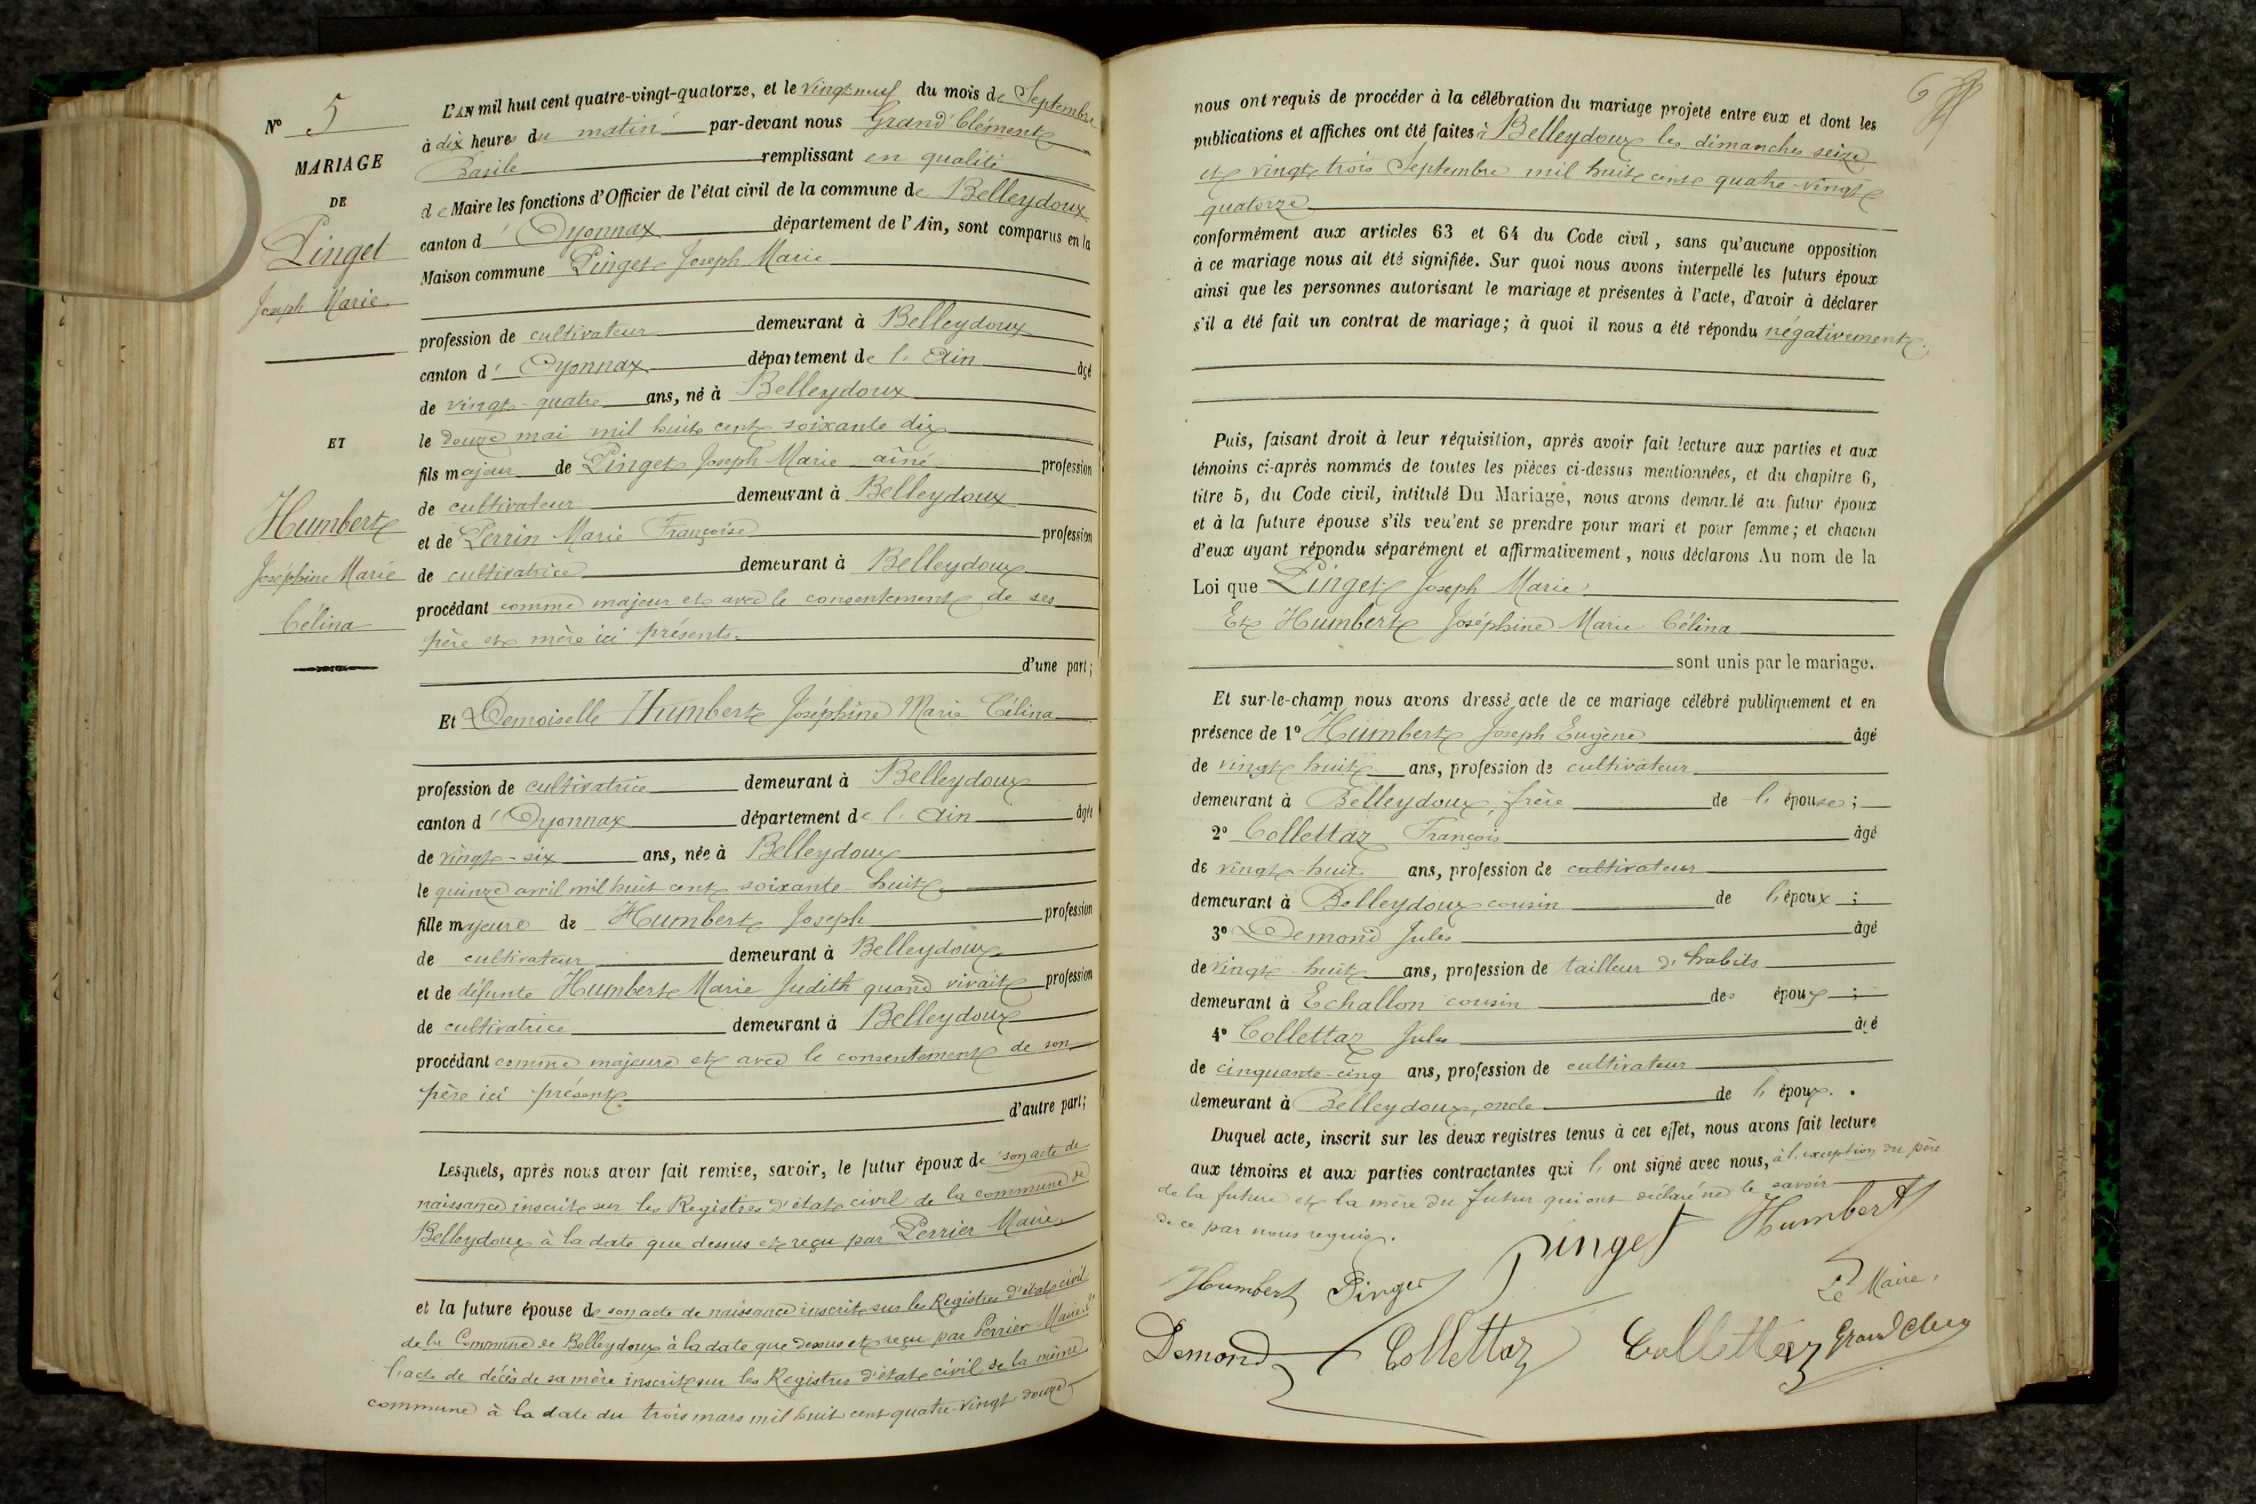 N° 5
MARIAGE
DE
Pinget
Joseph Marie
ET
Humbert
Joséphine Marie
Célina
L'AN mil huit cent quatre-vingt-quatorze, et le vingt neuf du mois de Septembre
à dix heures du matin par-devant nous Grand Clément
Basile remplissant en qualité
de Maire les fonctions d'Officier de l'état civil de la commune de Belleydoux
canton d'Oyonnax département de l'Ain, sont comparus en la
Maison commune Pinget Joseph Marie
profession de cultivateur demeurant à Belleydoux
canton d'Oyonnax département de l'Ain âgé
de vingt-quatre ans, né à Belleydoux
le douze mai mil huit cent soixante dix
fils majeur de Pinget Joseph Marie aîné profession
de cultivateur demeurant à Belleydoux
et de Perrin Marie Françoise profession
de cultivatrice demeurant à Belleydoux
procédant comme majeur et avec le consentement de ses
père et mère ici présents.
d'une part;
Et Demoiselle Humbert Joséphine Marie Célina
profession de cultivatrice demeurant à Belleydoux
canton d'Oyonnax département de l'Ain âgée
de vingt-six ans, née à Belleydoux
le quinze avril mil huit cent soixante-huit
fille majeure de Humbert Joseph profession
de cultivateur demeurant à Belleydoux
et de défunte Humbert Marie Judith quand vivait profession
de cultivatrice demeurant à Belleydoux
procédant comme majeure et avec le consentement de son
père ici présent
d'autre part;
Lesquels, après nous avoir fait remise, savoir, le futur époux de son acte de
naissance inscrit sur les Registres d'état civil de la commune de
Belleydoux à la date que dessus et reçu par Perrier Maire
et la future épouse de son acte de naissance inscrit sur les Registres d'état civil
de la Commune de Belleydoux à la date que dessus et reçu par Perrier Maire
l'acte de décès de sa mère inscrit sur les Registres d'état civil de la même
commune à la date du trois mars mil huit cent quatre-vingt douze
6
nous ont requis de procéder à la célébration du mariage projeté entre eux et dont les
publications et affiches ont été faites à Belleydoux les dimanches seize
et vingt trois Septembre mil huit cent quatre-vingt
quatorze
conformément aux articles 63 et 64 du Code civil, sans qu'aucune opposition
à ce mariage nous ait été signifiée. Sur quoi nous avons interpellé les futurs époux
ainsi que les personnes autorisant le mariage et présentes à l'acte, d'avoir à déclarer
s'il a été fait un contrat de mariage; à quoi il nous a été répondu négativement.
Puis, faisant droit à leur réquisition, après avoir fait lecture aux parties et aux
témoins ci-après nommés de toutes les pièces ci-dessus mentionnées, et du chapitre 6,
titre 5, du Code civil, intitulé Du Mariage, nous avons demandé au futur époux
et à la future épouse s'ils veulent se prendre pour mari et pour femme; et chacun
d'eux ayant répondu séparément et affirmativement, nous déclarons Au nom de la
Loi que Pinget Joseph Marie
Et Humbert Joséphine Marie Célina
sont unis par le mariage.
Et sur-le-champ nous avons dressé acte de ce mariage célébré publiquement et en
présence de 1° Humbert Joseph Eugène âgé
de vingt huit ans, profession de cultivateur
demeurant à Belleydoux, frère de l'épouse;
2° Collettaz François âgé
de vingt-huit ans, profession de cultivateur
demeurant à Belleydoux cousin de l'époux;
3° Demond Jules âgé
de vingt-huit ans, profession de tailleur d'habits
demeurant à Echallon cousin des époux;
4° Collettaz Jules âgé
de cinquante-cinq ans, profession de cultivateur
demeurant à Belleydoux, oncle de l'époux.
Duquel acte, inscrit sur les deux registres tenus à cet effet, nous avons fait lecture
aux témoins et aux parties contractantes qui l'ont signé avec nous, à l'exception du père
de la future et la mère du futur qui ont déclaré ne le savoir
de ce par nous requis.
pinget Humbert
Humbert Pinget Le Maire,
Demond Collettaz Collettaz Grand Clem